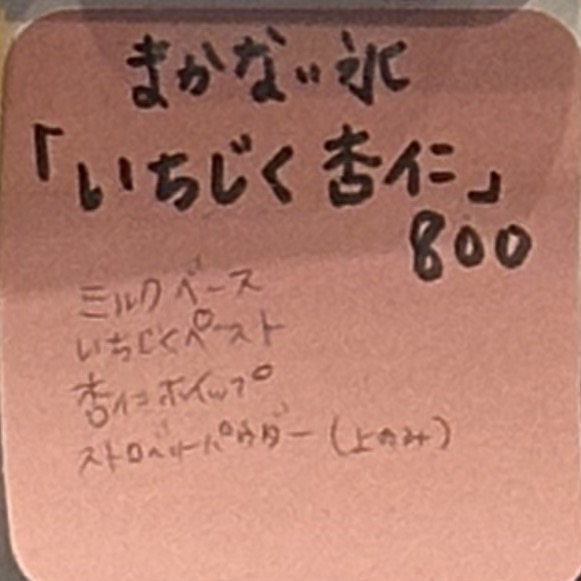 まかない氷
「いちじく杏仁」
800
ミルクベース
いちじくペースト
杏仁ホイップ
ストロベリーパウダー（上のみ）